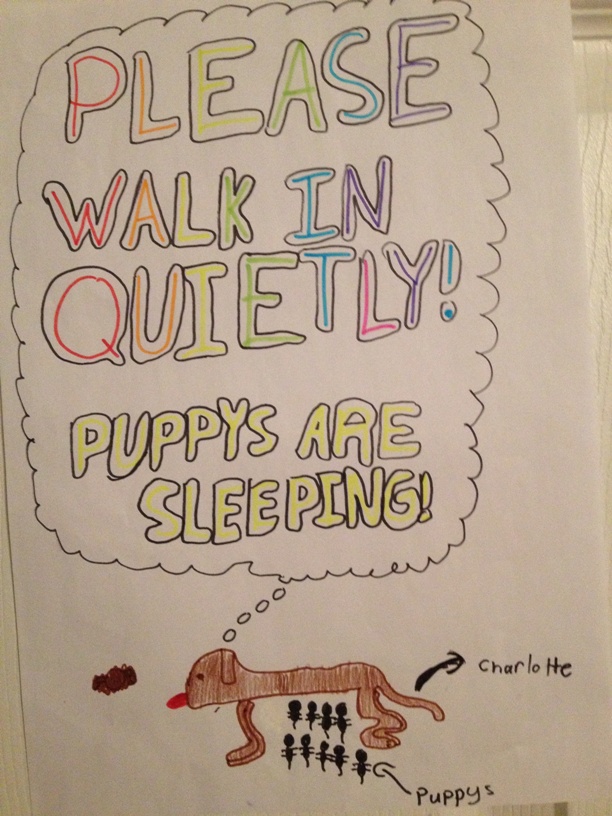 PLEASE
WALK IN
QUIETLY!
PUPPYS ARE
SLEEPING!
Charlotte
Puppys